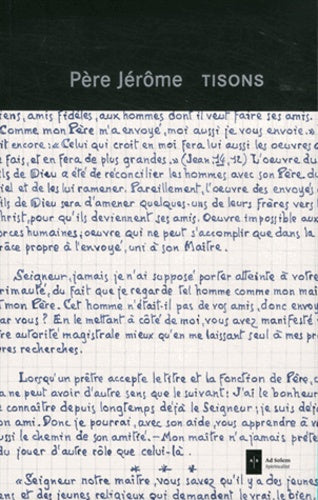 Père Jérôme TISONS
iens, amis fidèles, aux hommes dont il veut faire ses amis.
Comme mon Père m'a envoyé, moi aussi je vous envoie."
it encore: "Celui qui croit en moi fera lui aussi les oeuvres q
fais, et en fera de plus grandes." (Jean 14, 12) L'oeuvre du
ils de Dieu a été de réconcilier les hommes avec son Père du
iel et de les lui ramener. Pareillement, l'oeuvre des envoyés d
ils de Dieu sera d'amener quelques-uns de leurs frères vers l
hrist, pour qu'ils deviennent ses amis. Oeuvre impossible aux
orces humaines; oeuvre qui ne peut s'accomplir que dans la
râce propre à l'envoyé, uni à son Maître.
Seigneur, jamais je n'ai supposé porter atteinte à votre
rimauté, du fait que je regarde tel homme comme mon maî
t mon Père. Cet homme n'était-il pas de vos amis, donc envoy
ar vous? En le mettant à côté de moi, vous avez manifesté v
tre autorité magistrale mieux qu'en me laissant seul à mes pr
vres recherches.
Lorsqu'un prêtre accepte le titre et la fonction de Père, c
a ne peut avoir d'autre sens que le suivant: J'ai le bonheur
e connaître depuis longtemps déjà le Seigneur; je suis déjà
on ami. Donc je pourrai, avec son aide, vous apprendre à v
ussi le chemin de son amitié. – Mon maître n'a jamais prété
du jouer d'autre rôle que celui-là.
Ad Solem
spiritualité
"Seigneur notre maître, vous savez qu'il y a des jeunes
ens et des jeunes religieux qui demandent le vrai, le bien,